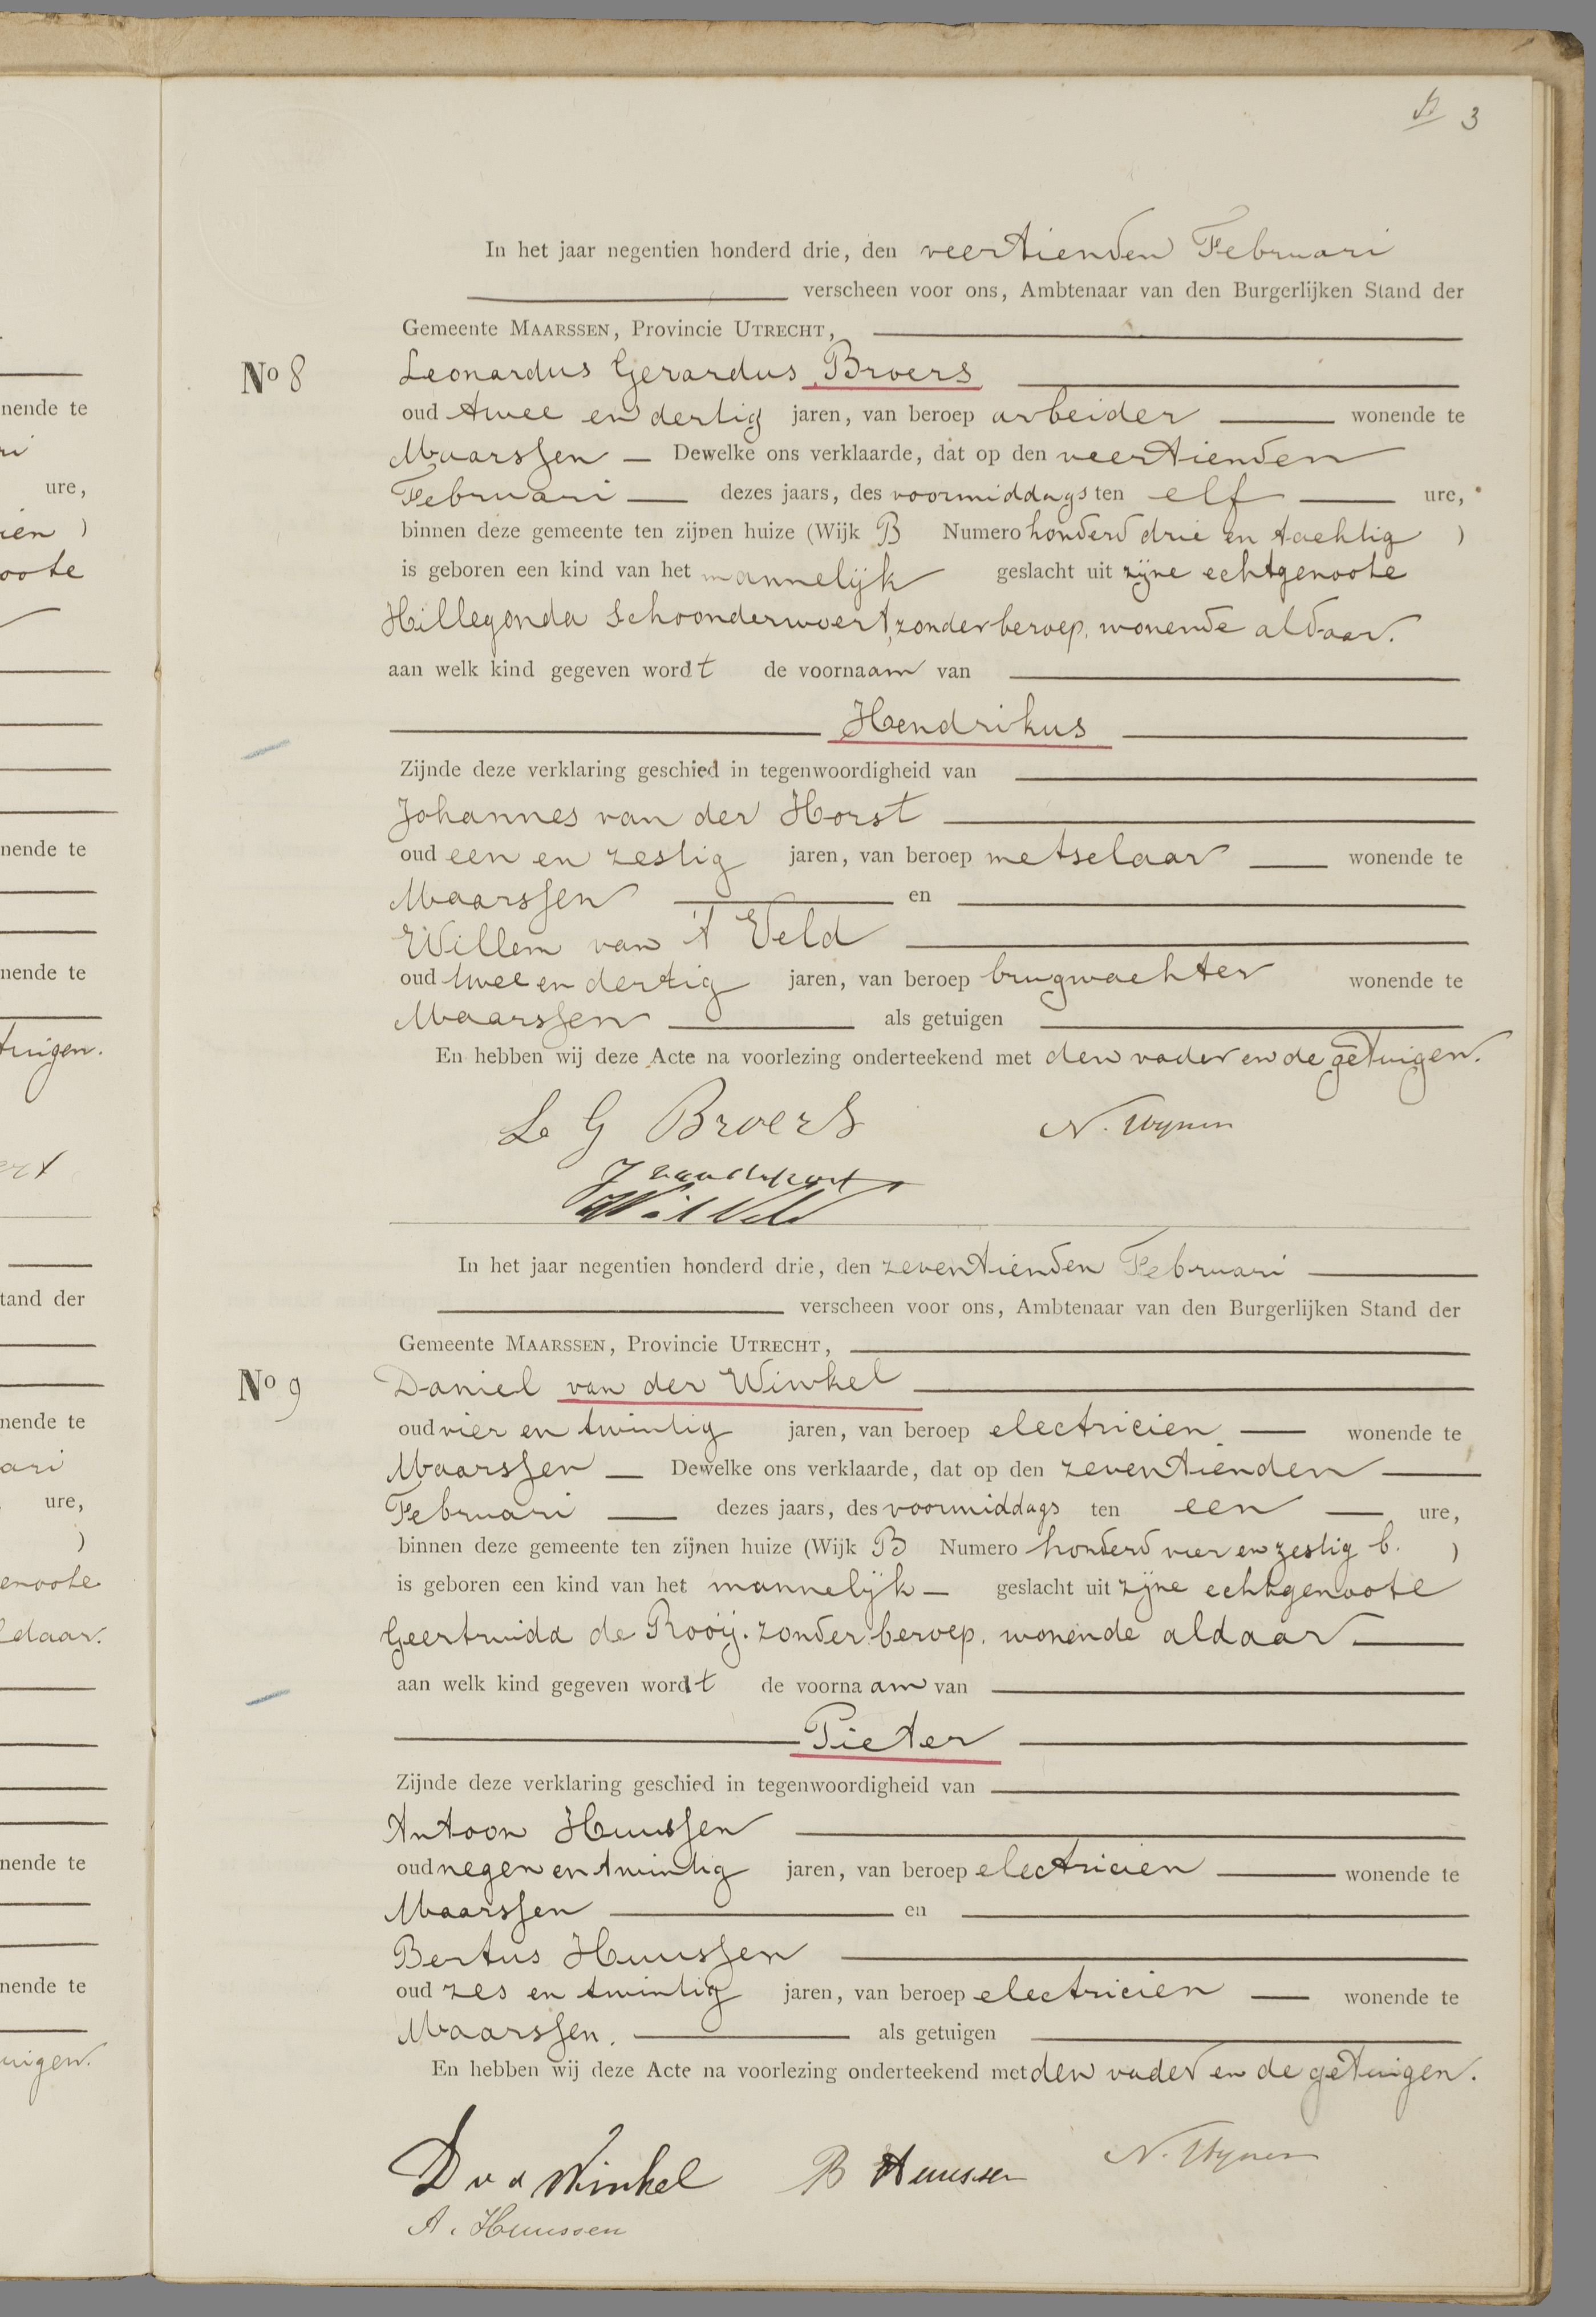 3
In het jaar negentien honderd drie, den veertienden Februari
verscheen voor ons, Ambtenaar van den Burgerlijken Stand der
Gemeente MAARSSEN, Provincie UTRECHT,
No 8 Leonardus Gerardus Broers
oud twee en dertig jaren, van beroep arbeider wonende te
Maarssen Dewelke ons verklaarde, dat op den veertienden
Februari dezes jaars, des voormiddags ten elf ure,
binnen deze gemeente ten zijnen huize (Wijk B Numero honderd drie en tachtig )
is geboren een kind van het mannelijk geslacht uit zijne echtgenoote
Hillegonda Schoonderwoert, zonder beroep, wonende aldaar.
aan welk kind gegeven wordt de voornaam van
Hendrikus
Zijnde deze verklaring geschied in tegenwoordigheid van
Johannes van der Horst
oud een en zestig jaren, van beroep metselaar wonende te
Maarssen en
Willem van 't Veld
oud twee en dertig jaren, van beroep brugwachter wonende te
Maarssen als getuigen
En hebben wij deze Acte na voorlezing onderteekend met den vader en de getuigen.
L G Broers N.
J van der Horst
W v 't Veld
In het jaar negentien honderd drie, den zeventienden Februari
verscheen voor ons, Ambtenaar van den Burgerlijken Stand der
Gemeente MAARSSEN, Provincie UTRECHT,
No 9 Daniel van der Winkel
oud vier en twintig jaren, van beroep electricien wonende te
Maarssen Dewelke ons verklaarde, dat op den zeventienden
Februari dezes jaars, des voormiddags ten een ure,
binnen deze gemeente ten zijnen huize (Wijk B Numero honderd vier en zestig b. )
is geboren een kind van het mannelijk geslacht uit zijne echtgenoote
Geertruida de Rooij. zonder beroep. wonende aldaar
aan welk kind gegeven wordt de voornaam van
Pieter
Zijnde deze verklaring geschied in tegenwoordigheid van
Antoon Huussen
oud negen en twintig jaren, van beroep electricien wonende te
Maarssen en
Bertus Huussen
oud zes en twintig jaren, van beroep electricien wonende te
Maarssen. als getuigen
En hebben wij deze Acte na voorlezing onderteekend met den vader en de getuigen.
D v d Winkel B Huussen N.
A. Huussen